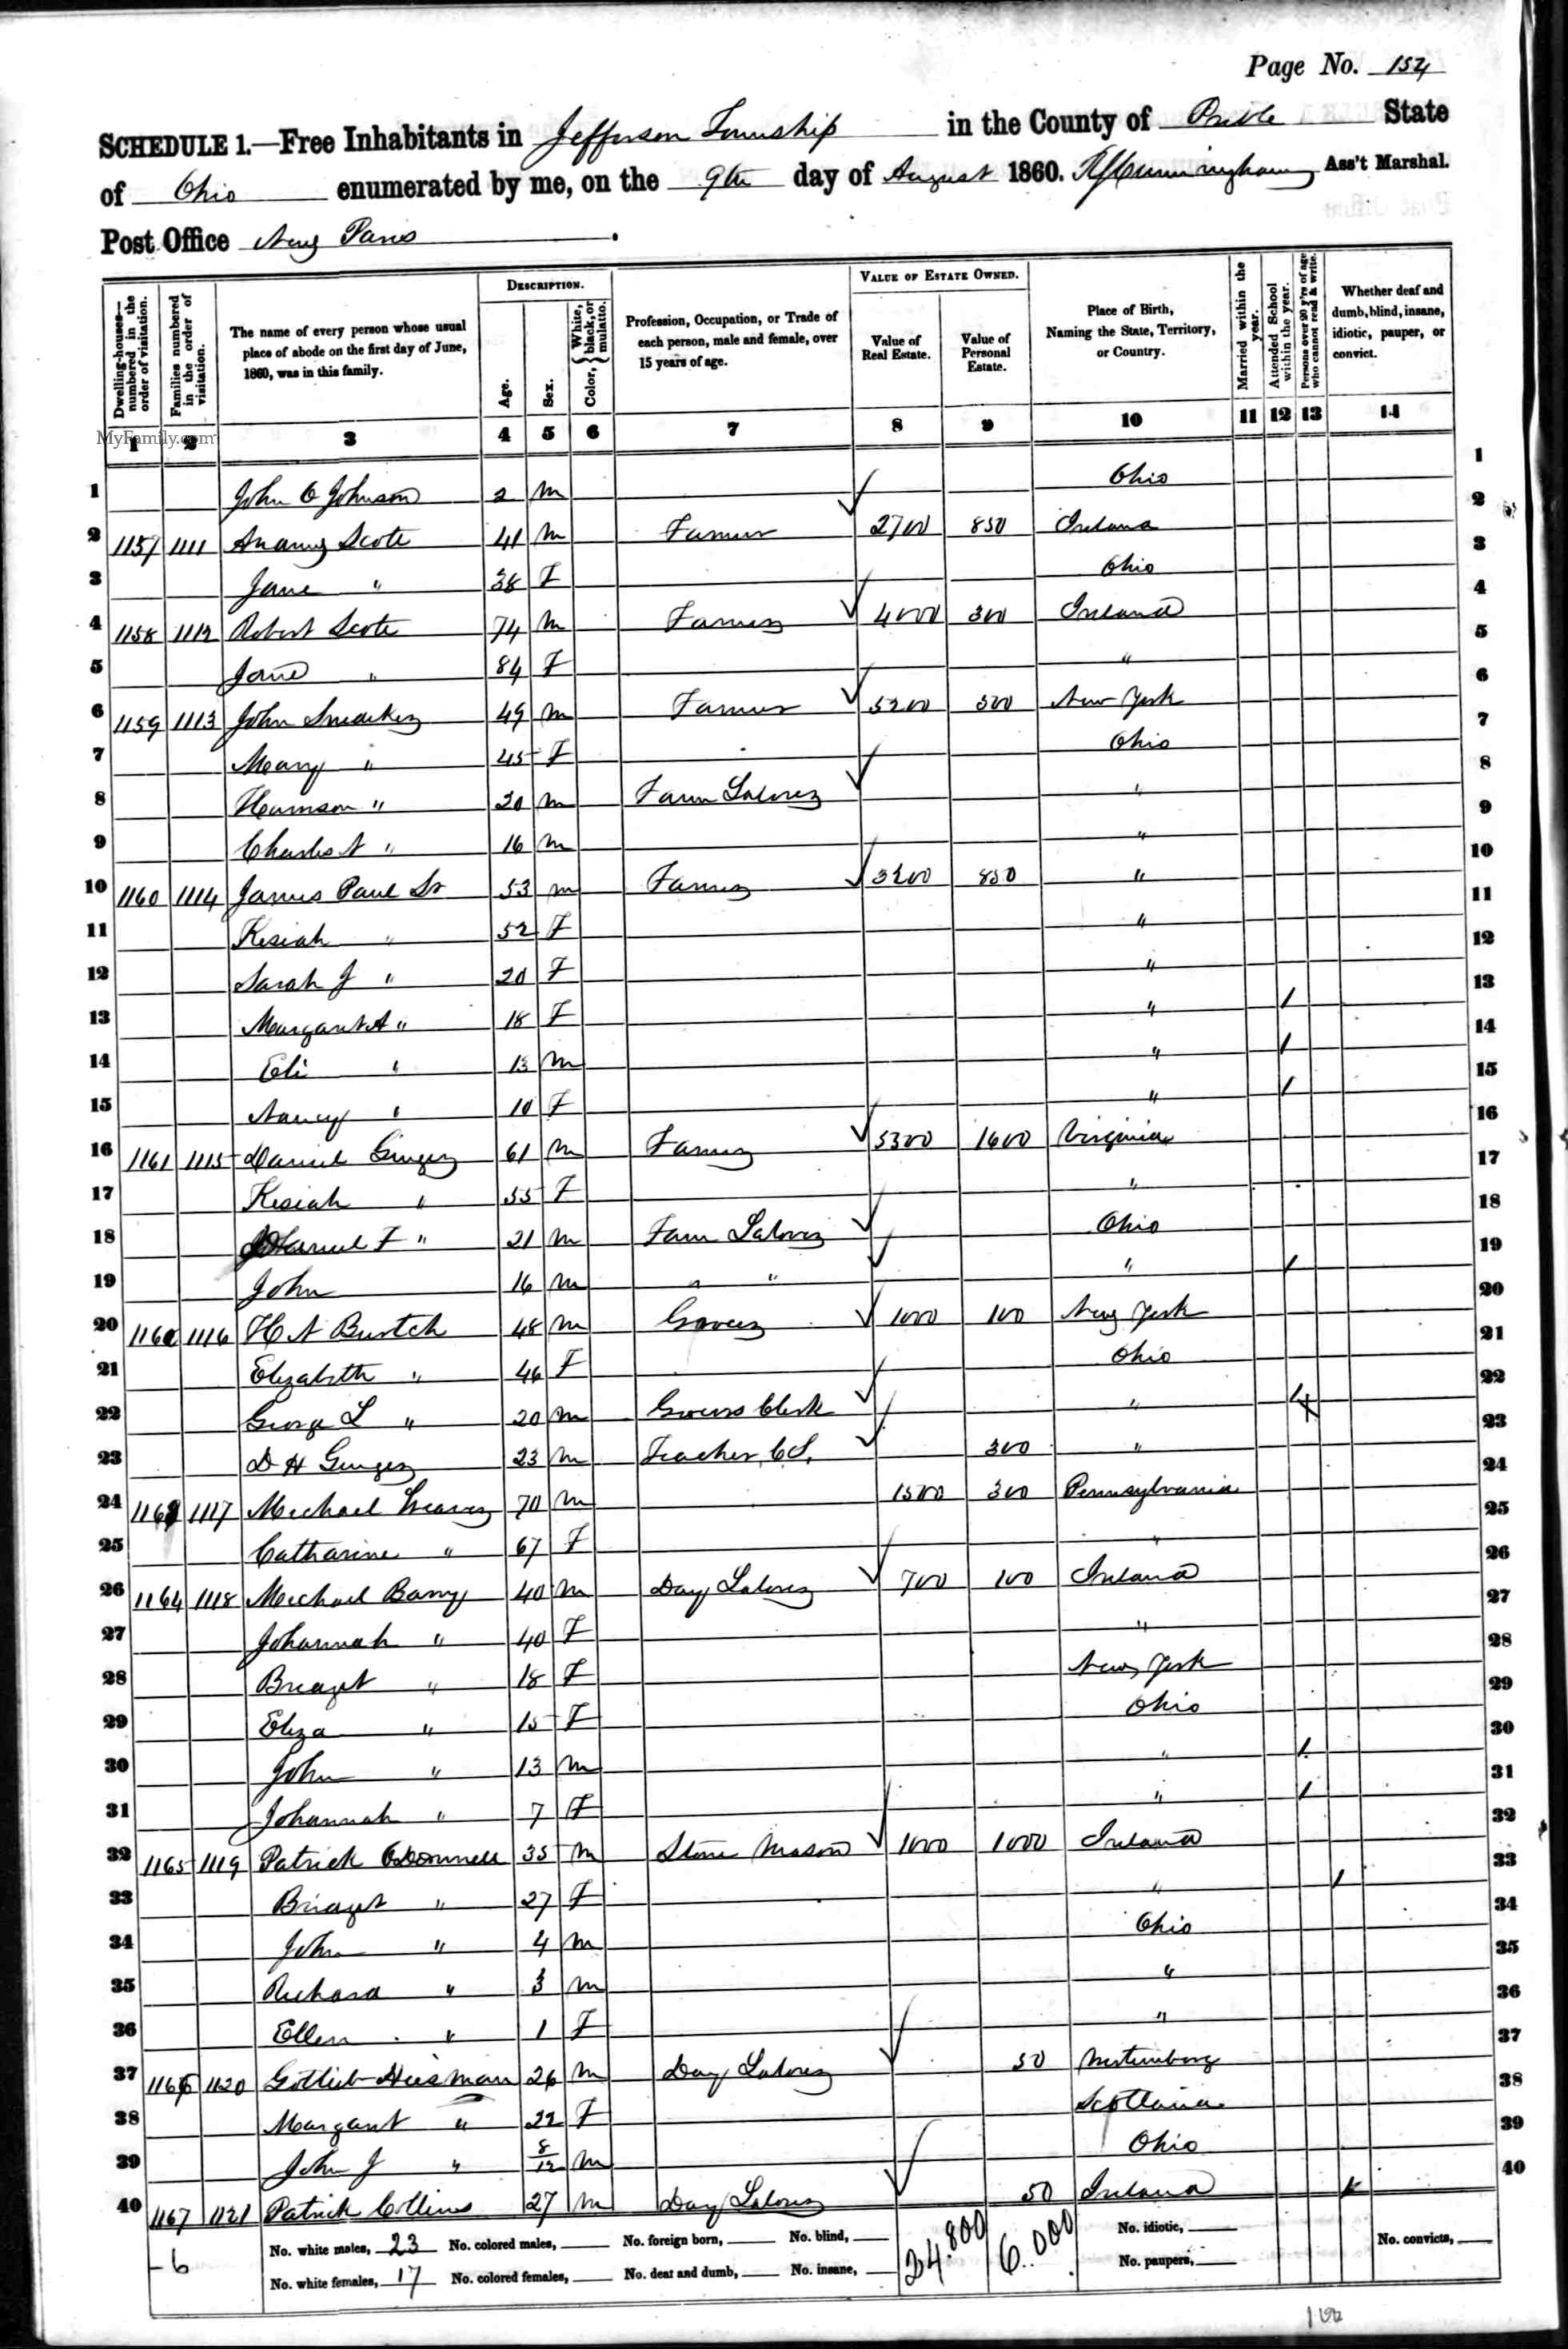 Page No. 154
SCHEDULE 1.—Free Inhabitants in Jefferson Township in the County of Preble State
of Ohio enumerated by me, on the 9th day of August 1860. Cunningham Ass't Marshal.
Post Office New Paris.
Dwelling-houses—numbered in the order of visitation. Families numbered in the order of visitation. The name of every person whose usual place of abode on the first day of June, 1860, was in this family. DESCRIPTION. Age. Sex. Color, { White, black, or mulatto. Profession, Occupation, or Trade of each person, male and female, over 15 years of age. VALUE OF ESTATE OWNED. Value of Real Estate. Value of Personal Estate. Place of Birth, Naming the State, Territory, or Country. Married within the year. Attended School within the year. Persons over 20 y'rs of age who cannot read & write. Whether deaf and dumb, blind, insane, idiotic, pauper, or convict.
MyFamily.com
1 2 3 4 5 6 7 8 9 10 11 12 13 14
1 John O Johnson 2 m Ohio 1
2 1157 1111 Scott 41 m Farmer 2700 850 Ireland 2
3 Jane " 38 F Ohio 3
4 1158 1112 Robert Scott 74 m Farmer 4000 300 Ireland 4
5 Jane " 84 F " 5
6 1159 1113 John 49 m Farmer 5200 500 New York 6
7 Mary " 45 F Ohio 7
8 Harrison " 20 m Farm Laborer " 8
9 Charles A " 16 m " 9
10 1160 1114 James Paul Sr 53 m Farmer 3200 850 " 10
11 Kesiah " 52 F " 11
12 Sarah J " 20 F " 12
13 Margaret A " 18 F " / 13
14 Eli " 13 m " / 14
15 Nancy " 10 F " / 15
16 1161 1115 Daniel Ginger 61 m Farmer 5300 1600 Virginia 16
17 Kesiah " 55 F " 17
18 Daniel F " 21 m Farm Laborer Ohio 18
19 John 16 m " " " / 19
20 1162 1116 H A 48 m Grocer 1000 100 New York 20
21 Elizabeth " 46 F Ohio 21
22 George L " 20 m Grocers Clerk " 22
23 D H Ginger 23 m Teacher C.S. 300 " 23
24 1163 1117 Michael Weaver 70 m 1500 300 Pennsylvania 24
25 Catharine " 67 F " 25
26 1164 1118 Michael Barry 40 m Day Laborer 700 100 Ireland 26
27 Johannah " 40 F " 27
28 Bridget " 18 F New York 28
29 Eliza " 15 F Ohio 29
30 John " 13 m " / 30
31 Johannah " 7 F " / 31
32 1165 1119 Patrick O'Donnell 35 m Stone Mason 1000 1000 Ireland 32
33 Bridget " 27 F " / 33
34 John " 4 m Ohio 34
35 Richard " 3 m " 35
36 Ellen " 1 F " 36
37 1166 1120 Gottlieb Heisman 26 m Day Laborer 50 Wertemberg 37
38 Margaret " 22 F Scotland 38
39 John J " 8/12 m Ohio 39
40 1167 1121 Patrick Collins 27 m Day Laborer 50 Ireland 40
-6 No. white males, 23 No. colored males, No. foreign born, No. blind, 24.800 6.000 No. idiotic, No. convicts,
No. white females, 17 No. colored females, No. deaf and dumb, No. insane, No. paupers,